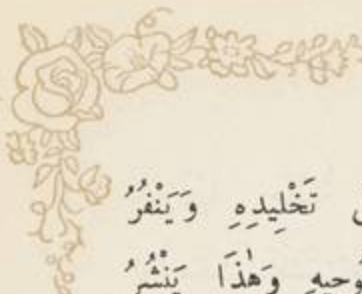 تَخْلِيدِهِ وَيَنْفُرُ
وَهٰذَا يَنْشُرُ